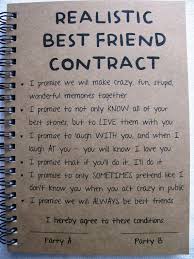 REALISTIC
BEST FRIEND
CONTRACT
• I promise we will make crazy, fun, stupid,
wonderful memories together
• I promise to not only KNOW all of your
best stories, but to LIVE them with you
• I promise to laugh WITH you, and when I
laugh AT you - you will know I love you
• I promise that if you'll do it, I'll do it
• I promise to only SOMETIMES pretend like I
don't know you when you act crazy in public
• I promise we will ALWAYS be best friends
I hereby agree to these conditions
Party A Party B